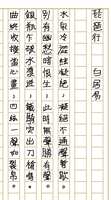 琵琶行
白居易
水泉冷澀絃凝絕，凝絕不通聲暫歇。
別有幽愁暗恨生，此時無聲勝有聲。
銀瓶乍破水漿迸，鐵騎突出刀槍鳴。
曲終收撥當心畫，四絃一聲如裂帛。